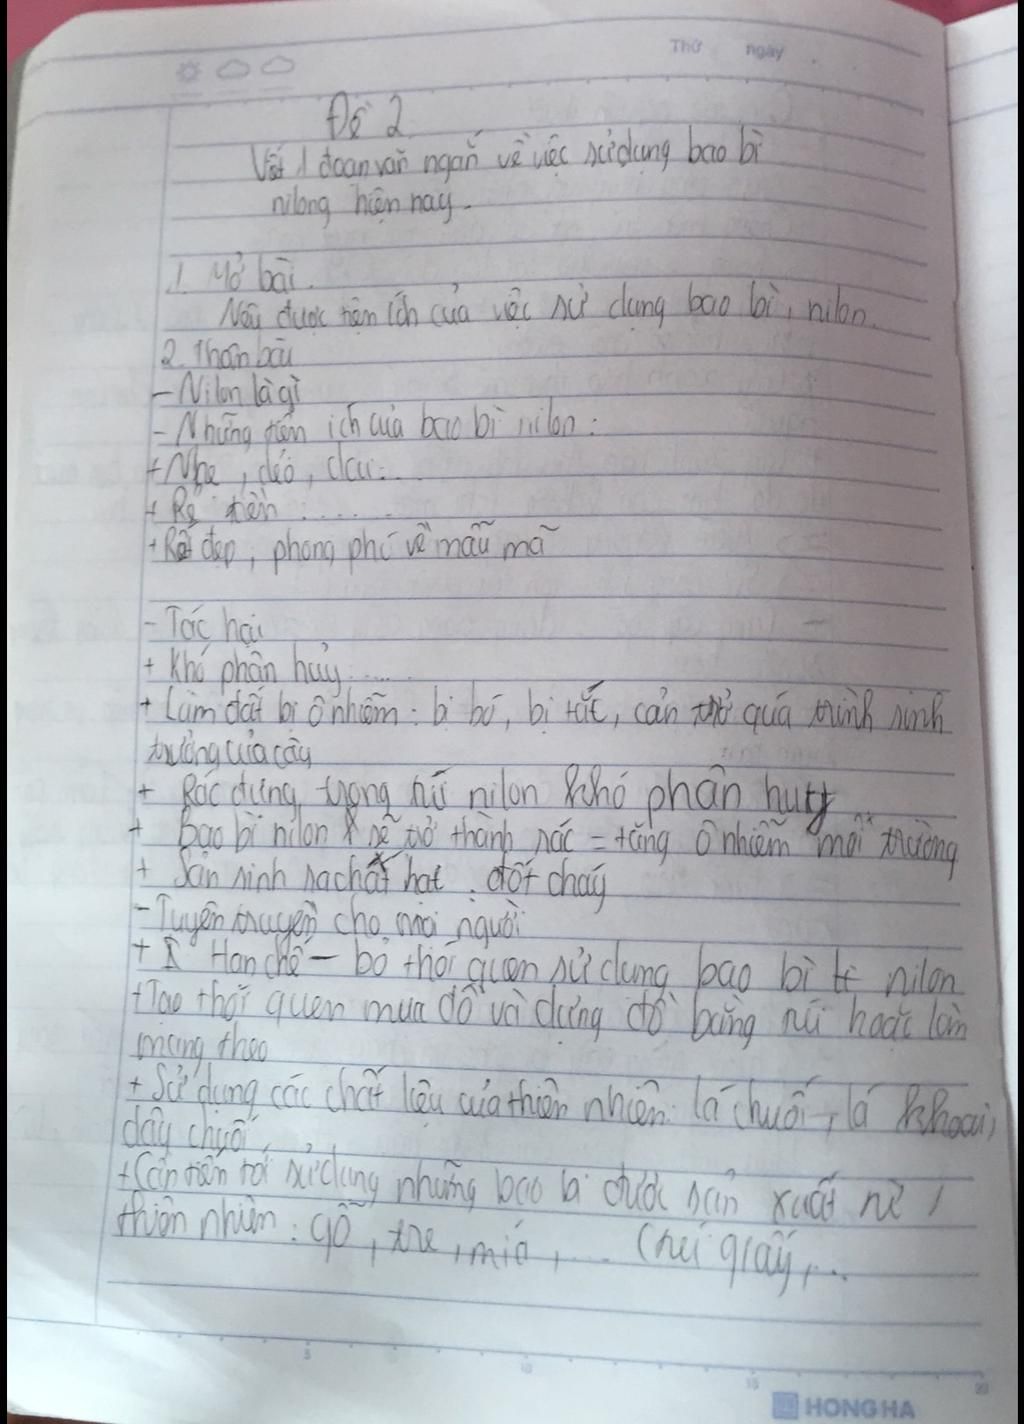 Thứ ngày
Đề 2
Viết 1 đoạn văn ngắn về việc sử dụng bao bì
nilong hiện nay.
1. Mở bài.
Nêu được tiện ích của việc sử dụng bao bì, nilon.
2. Thân bài
- Nilon là gì
- Những tiện ích của bao bì nilon:
+ Nhẹ, dẻo, dai...
+ Rẻ tiền.......
+ Rất đẹp, phong phú về mẫu mã
- Tác hại
+ Khó phân hủy......
+ Làm đất bị ô nhiễm: bị bó, bị tắt, cản trở quá trình sinh
trưởng của cây
+ Rác đựng trong túi nilon khó phân huỷ
+ Bao bì nilon sẽ trở thành rác = tăng ô nhiễm môi trường
+ Sản sinh ra chất hại: đốt cháy
- Tuyên truyền cho mọi người
+ Hạn chế - bỏ thói quen sử dụng bao bì nilon
+ Tạo thói quen mua đồ và đựng đồ bằng túi hoặc làn
mang theo
+ Sử dụng các chất liệu của thiên nhiên: lá chuối, lá khoai,
dây chuối,
+ Cần tiến tới sử dụng những bao bì được sản xuất từ
thiên nhiên: gỗ, tre, mía, ... (túi giấy,...
5 10 15 20
HONG HA